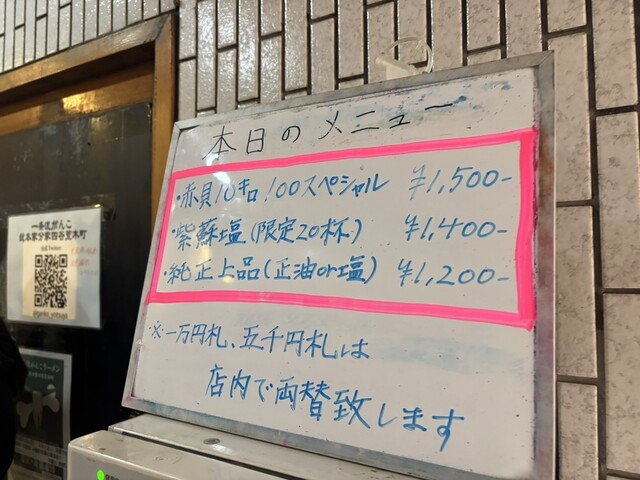 本日のメニュー
・赤貝10キロ100スペシャル ¥1,500-
・紫蘇塩(限定20杯) ¥1,400-
・純正上品(正油or塩) ¥1,200-
・※一万円札、五千円札は
店内で両替致します
一条流がんこ
総本家分家四谷荒木町